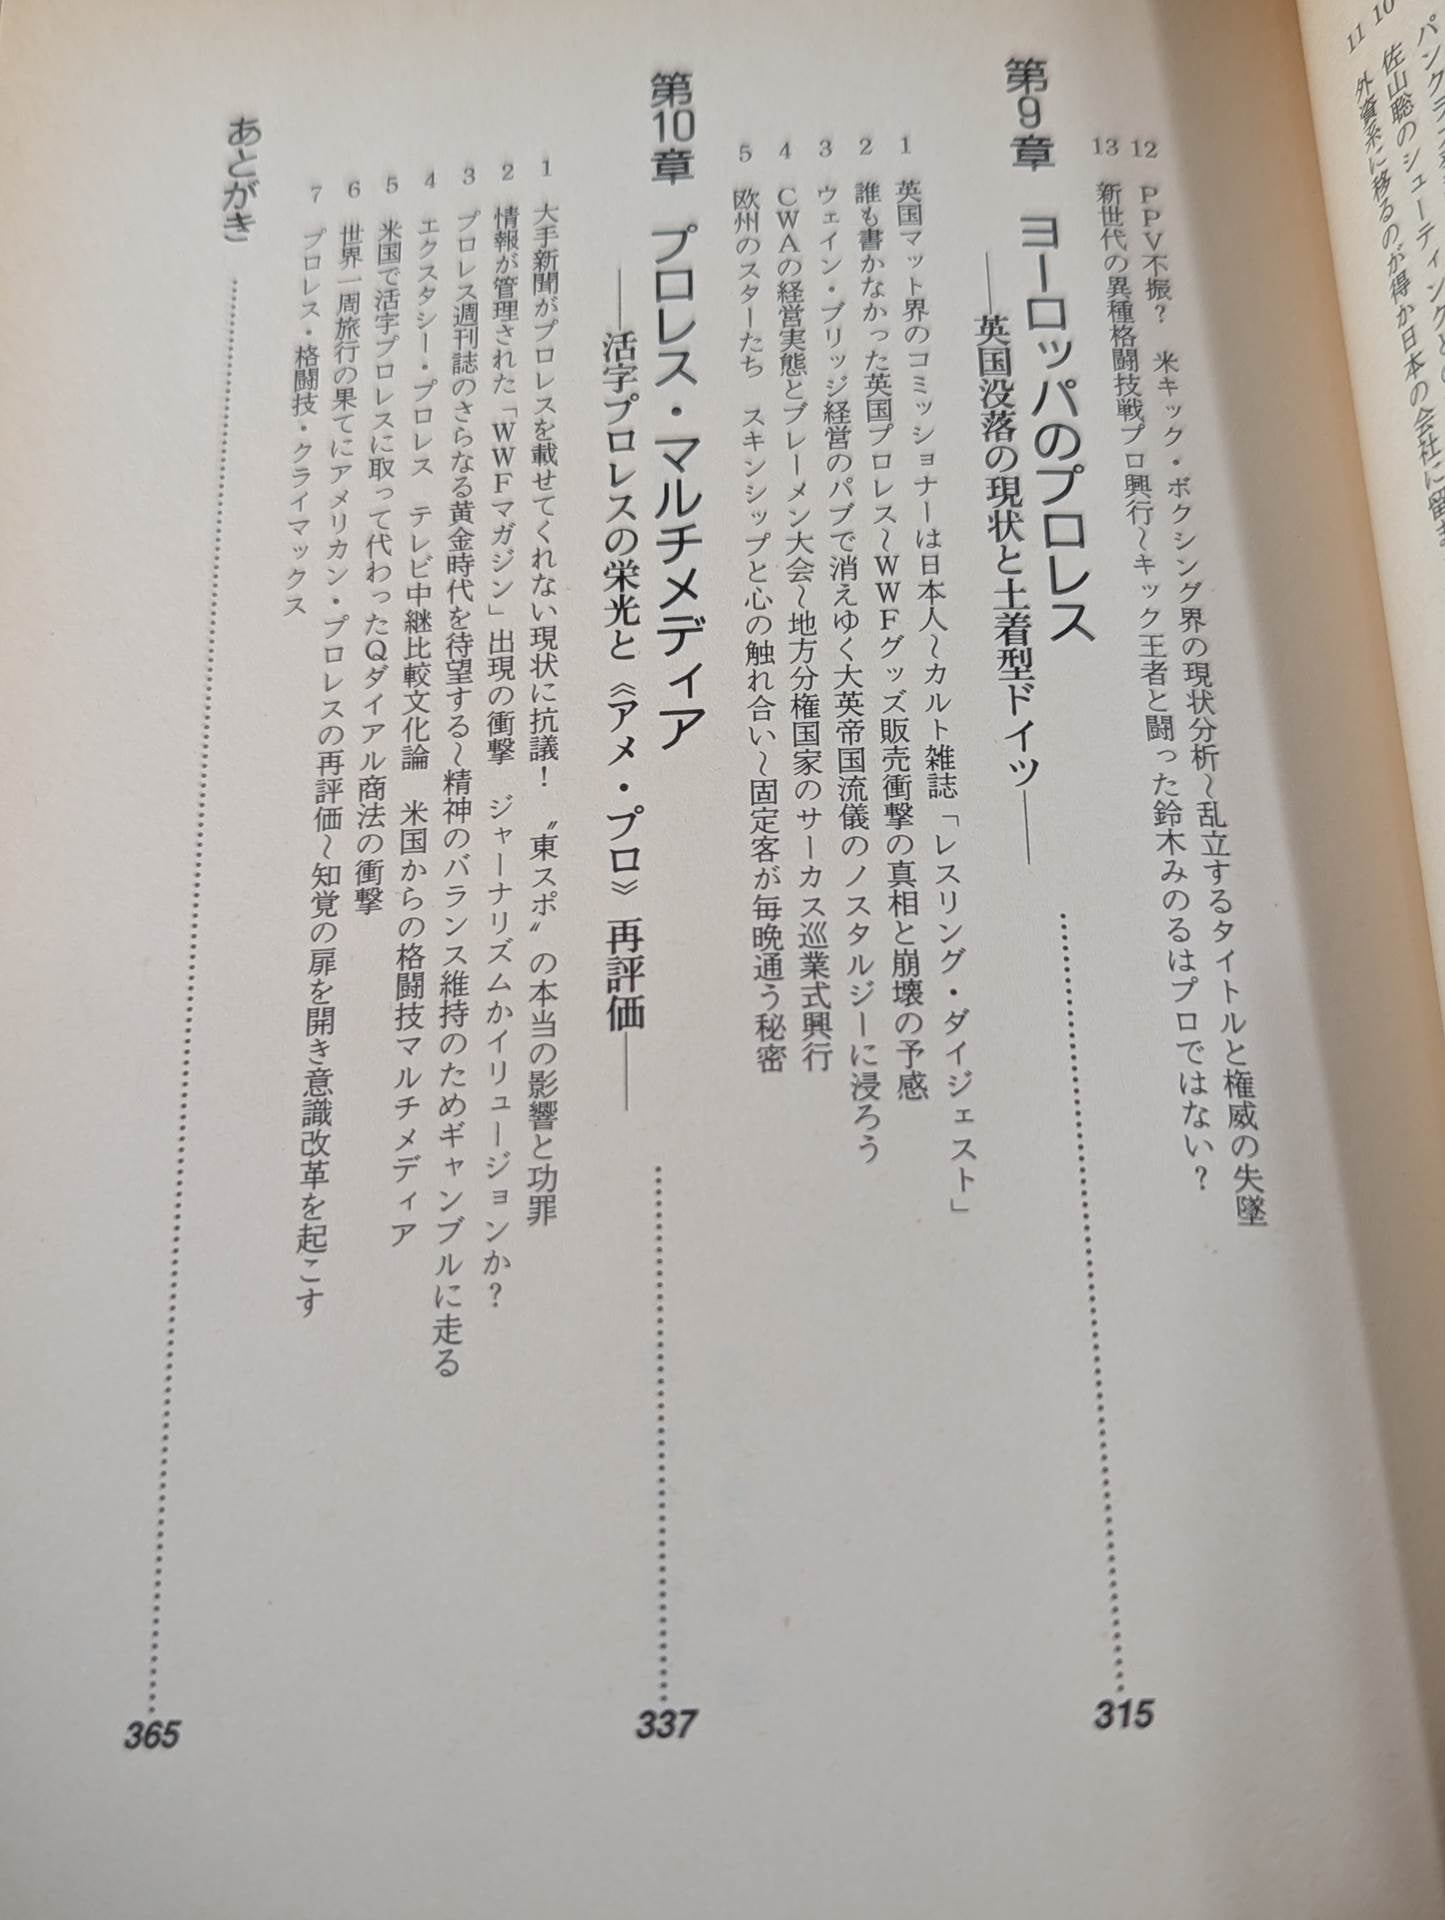 11 外資系に移るのが得か日本の会社に留ま
12 PPV不振? 米キック・ボクシング界の現状分析〜乱立するタイトルと権威の失墜
13 新世代の異種格闘技戦プロ興行〜キック王者と闘った鈴木みのるはプロではない?
第9章 ヨーロッパのプロレス
――英国没落の現状と土着型ドイツ―― 315
1 英国マット界のコミッショナーは日本人〜カルト雑誌「レスリング・ダイジェスト」
2 誰も書かなかった英国プロレス〜WWFグッズ販売衝撃の真相と崩壊の予感
3 ウェイン・ブリッジ経営のパブで消えゆく大英帝国流儀のノスタルジーに浸ろう
4 CWAの経営実態とブレーメン大会〜地方分権国家のサーカス巡業式興行
5 欧州のスターたち スキンシップと心の触れ合い〜固定客が毎晩通う秘密
第10章 プロレス・マルチメディア
――活字プロレスの栄光と《アメ・プロ》再評価―― 337
1 大手新聞がプロレスを載せてくれない現状に抗議! 〝東スポ〟の本当の影響と功罪
2 情報が管理された「WWFマガジン」出現の衝撃 ジャーナリズムかイリュージョンか?
3 プロレス週刊誌のさらなる黄金時代を待望する〜精神のバランス維持のためギャンブルに走る
4 エクスタシー・プロレス テレビ中継比較文化論 米国からの格闘技マルチメディア
5 米国で活字プロレスに取って代わったQダイアル商法の衝撃
6 世界一周旅行の果てにアメリカン・プロレスの再評価〜知覚の扉を開き意識改革を起こす
7 プロレス・格闘技・クライマックス
あとがき 365